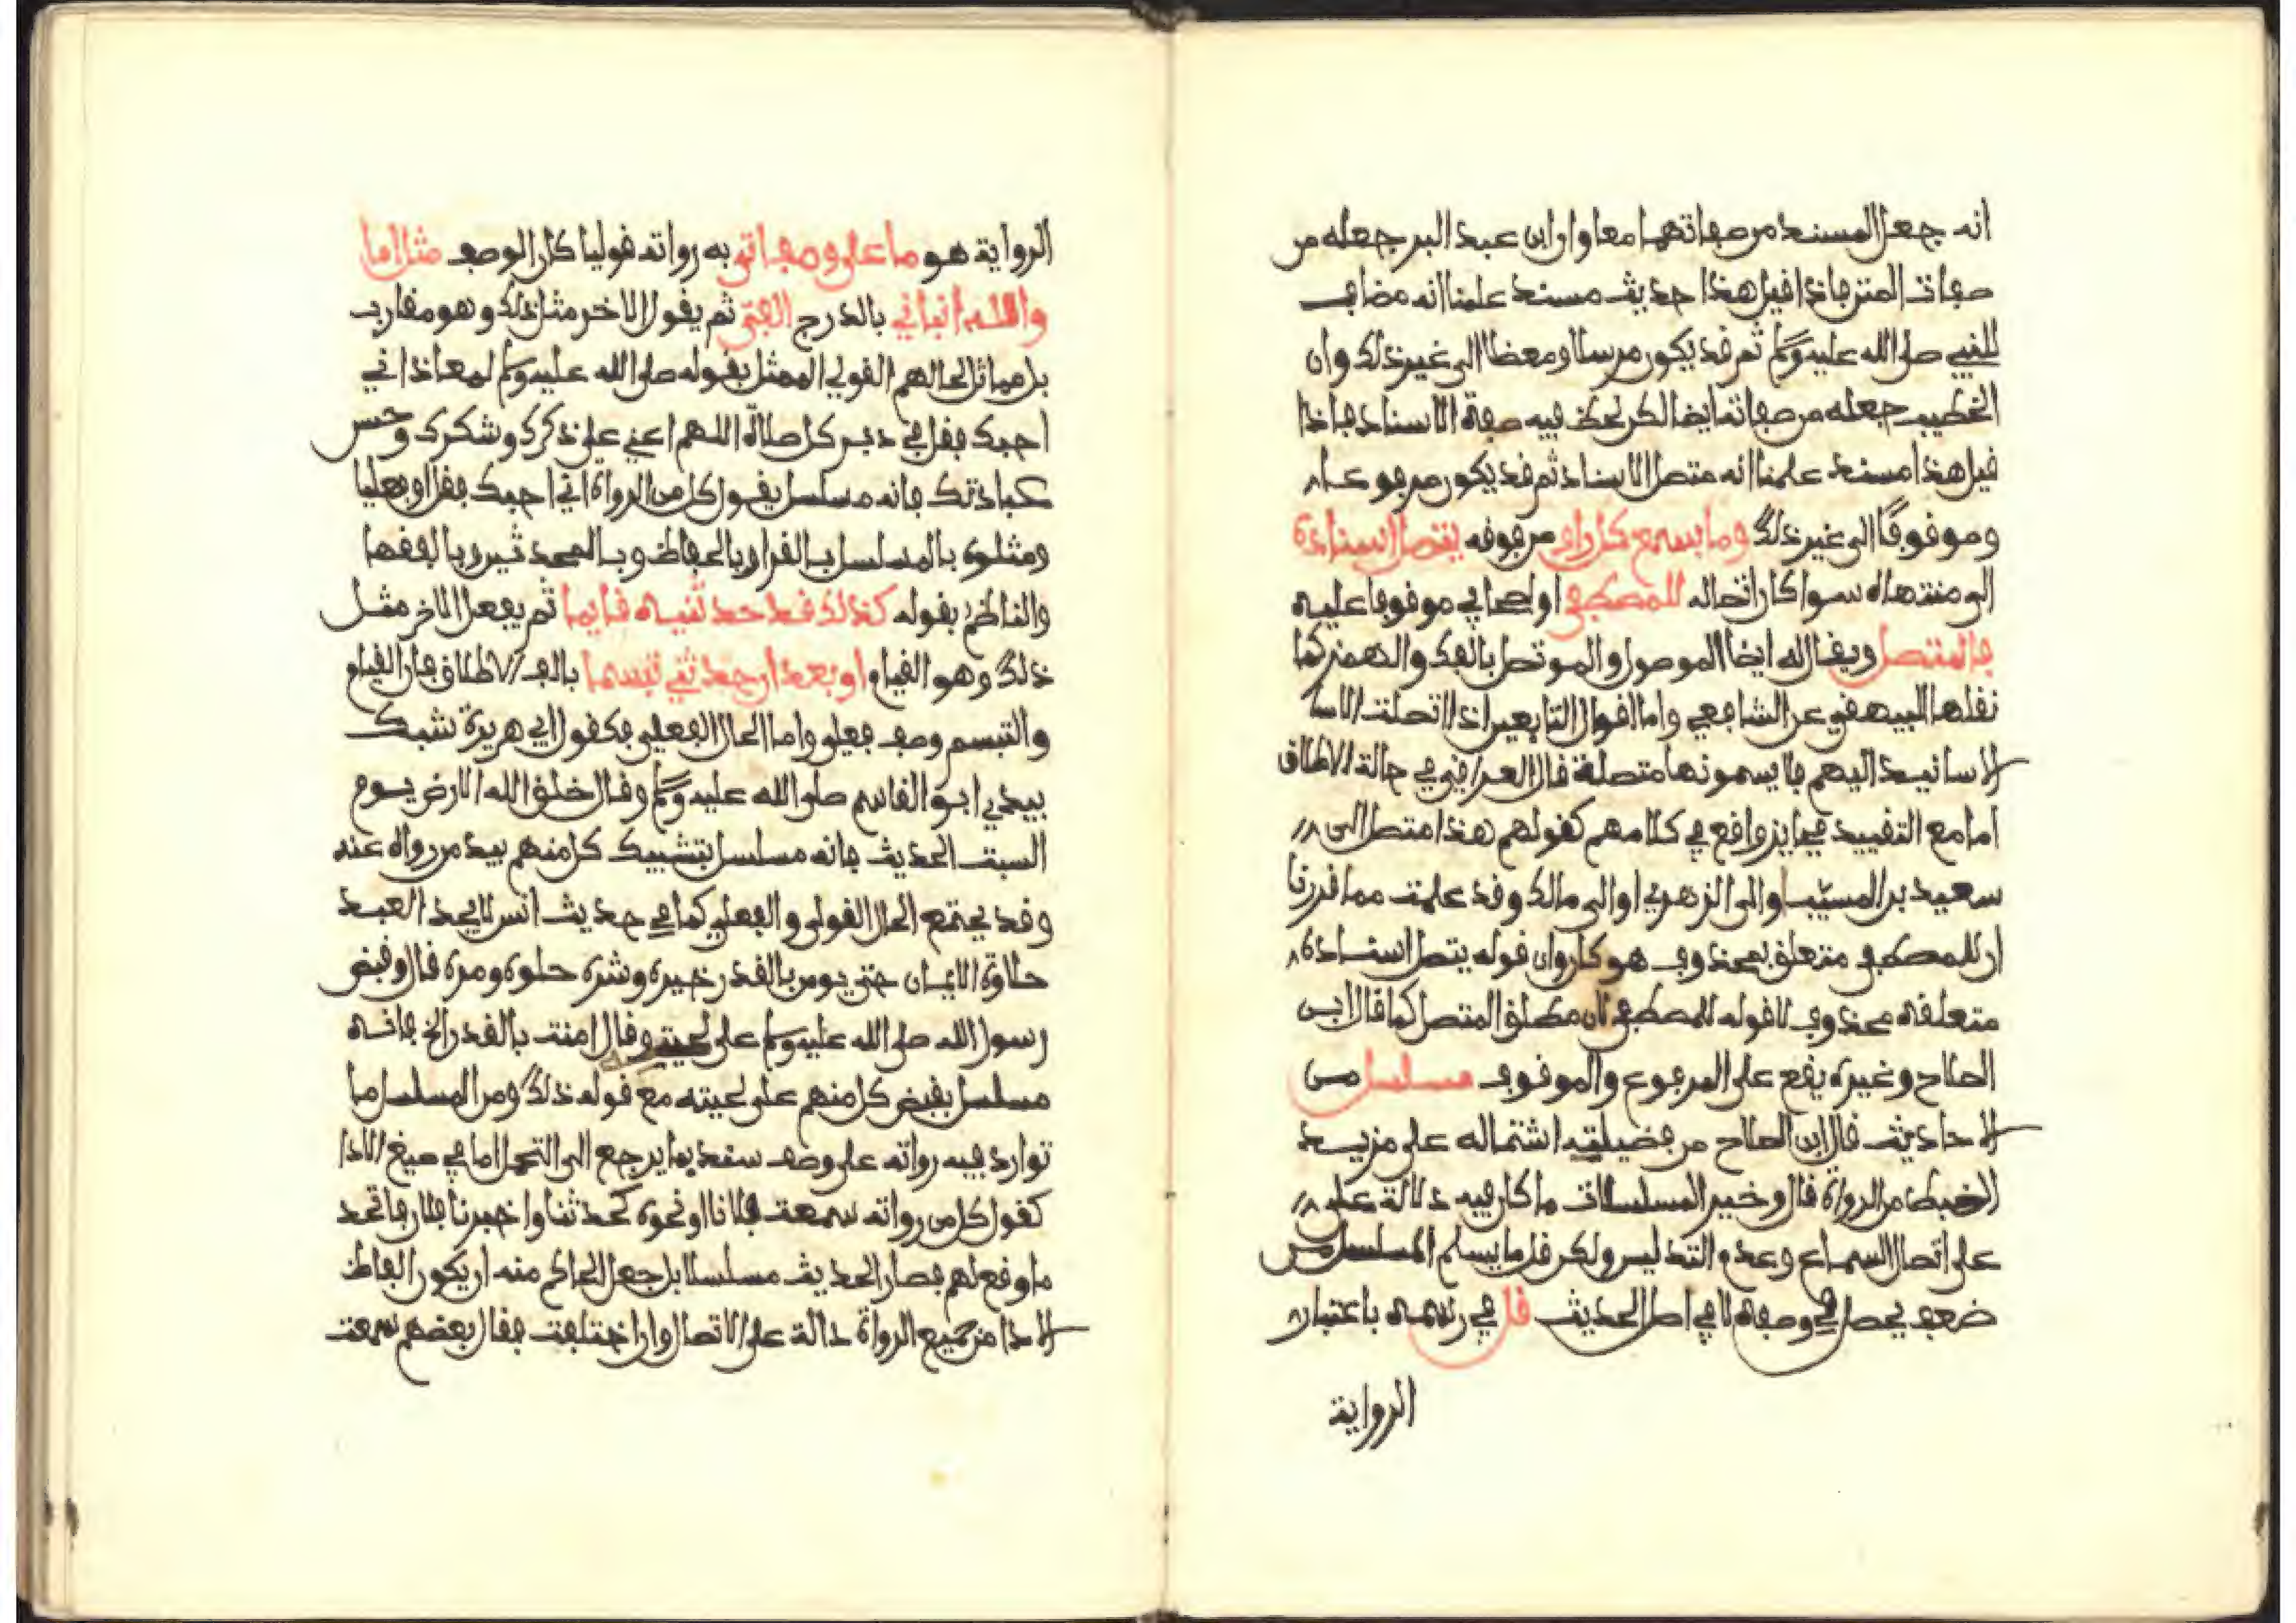 انه جعل المسند من صفاتهما معا وان ابن عبد البر جعله من
صفات المتن فاذا قيل هذا حديث مسند علمنا انه مضاف
للنبي صلى الله عليه وسلم ثم قد يكون مرسلا ومعضلا الى غير ذلك وان
الخطيب جعله من صفاته ايضا لكن لحظ فيه صفة الاسناد فاذا
قيل هذا مسند علمنا انه متصل الاسناد ثم قد يكون مرفوعا
وموقوفا الى غير ذلك وما بسمع كل راو من فوقه يتصل اسناده
الى منتهاه سوا كان اتصاله للمصطفى او لصحابي موقوفا عليه
فالمتصل ويقال له ايضا الموصول والموتصل بالفك والهمز كما
نقلها البيهقي عن الشافعي واما اقوال التابعين اذا اتصلت الاسا
الاسانيد اليهم فلا يسمونها متصلة قال العراقي في حالة الاطلاق
اما مع التقييد فجايز واقع في كلامهم كقولهم هذا متصل الى
سعيد بن المسيب او الى الزهري او الى مالك وقد علمت مما قررنا
ان للمصطفى متعلق بمحذوف هو كان وان قوله يتصل اسناده
متعلقه محذوف لا قوله للمصطفى لان مطلق المتصل كما قال ابن
الصلاح وغيره يقع على المرفوع والموقوف مسلسل من
الاحاديث قال ابن الصلاح من فضيلته اشتماله على مزيد
الضبط من الرواة قال وخير المسلسلات ما كان فيه دلالة على
على اتصال السماع وعدم التدليس ولكن قل ما يسلم المسلسل من
ضعف يحصل في وصفه لا في اصل الحديث قل في رسمه باعتبار
الرواية
الرواية هو ما على وصف اتى به رواته قوليا كان الوصف مثل اما
والله انباني بالدرج الفتى ثم يقول الاخر مثل ذلك وهو مقارب
بل مماثل لحالهم القولي الممثل بقوله صلى الله عليه وسلم لمعاذ اني
احبك فقل في دبر كل صلاة اللهم اعني على ذكرك وشكرك وحسن
عبادتك فانه مسلسل بقول كل من الرواة اني احبك فقل او فعليا
ومثلوه بالمسلسل بالقرا وبالحفاظ وبالمحدثين وبالفقها
والناظم بقوله كذاك قد حدثنيه قايما ثم يفعل الاخر مثل
ذلك وهو القيام او بعد ان حدثني تبسما بالف الاطلاق فان القيام
والتبسم وصف فعلي واما الحال الفعلي فكقول ابي هريرة شبك
بيدي ابو القاسم صلى الله عليه وسلم وقال خلق الله الارض يوم
السبت الحديث فانه مسلسل بتشبيك كل منهم بيد من رواه عنه
وقد يجتمع الحال القولي والفعلي كما في حديث انس لا يجد العبد
حلاوة الايمان حتى يومن بالقدر خيره وشره حلوه ومره قال وقبض
رسول الله صلى الله عليه وسلم على لحيته وقال امنت بالقدر الخ فانه
مسلسل بقبض كل منهم على لحيته مع قوله ذلك ومن المسلسل ما
توارد فيه رواته على وصف سند بما يرجع الى التحمل اما في صيغ الادا
كقول كل من رواته سمعت فلانا او نحوه كحدثنا واخبرنا فلان فاتحد
ما وقع لهم فصار الحديث مسلسلا بل جعل الحاكم منه ان يكون الفاظ
الادا من جميع الرواة دالة على الاتصال وان اختلفت فقال بعضهم سمعت